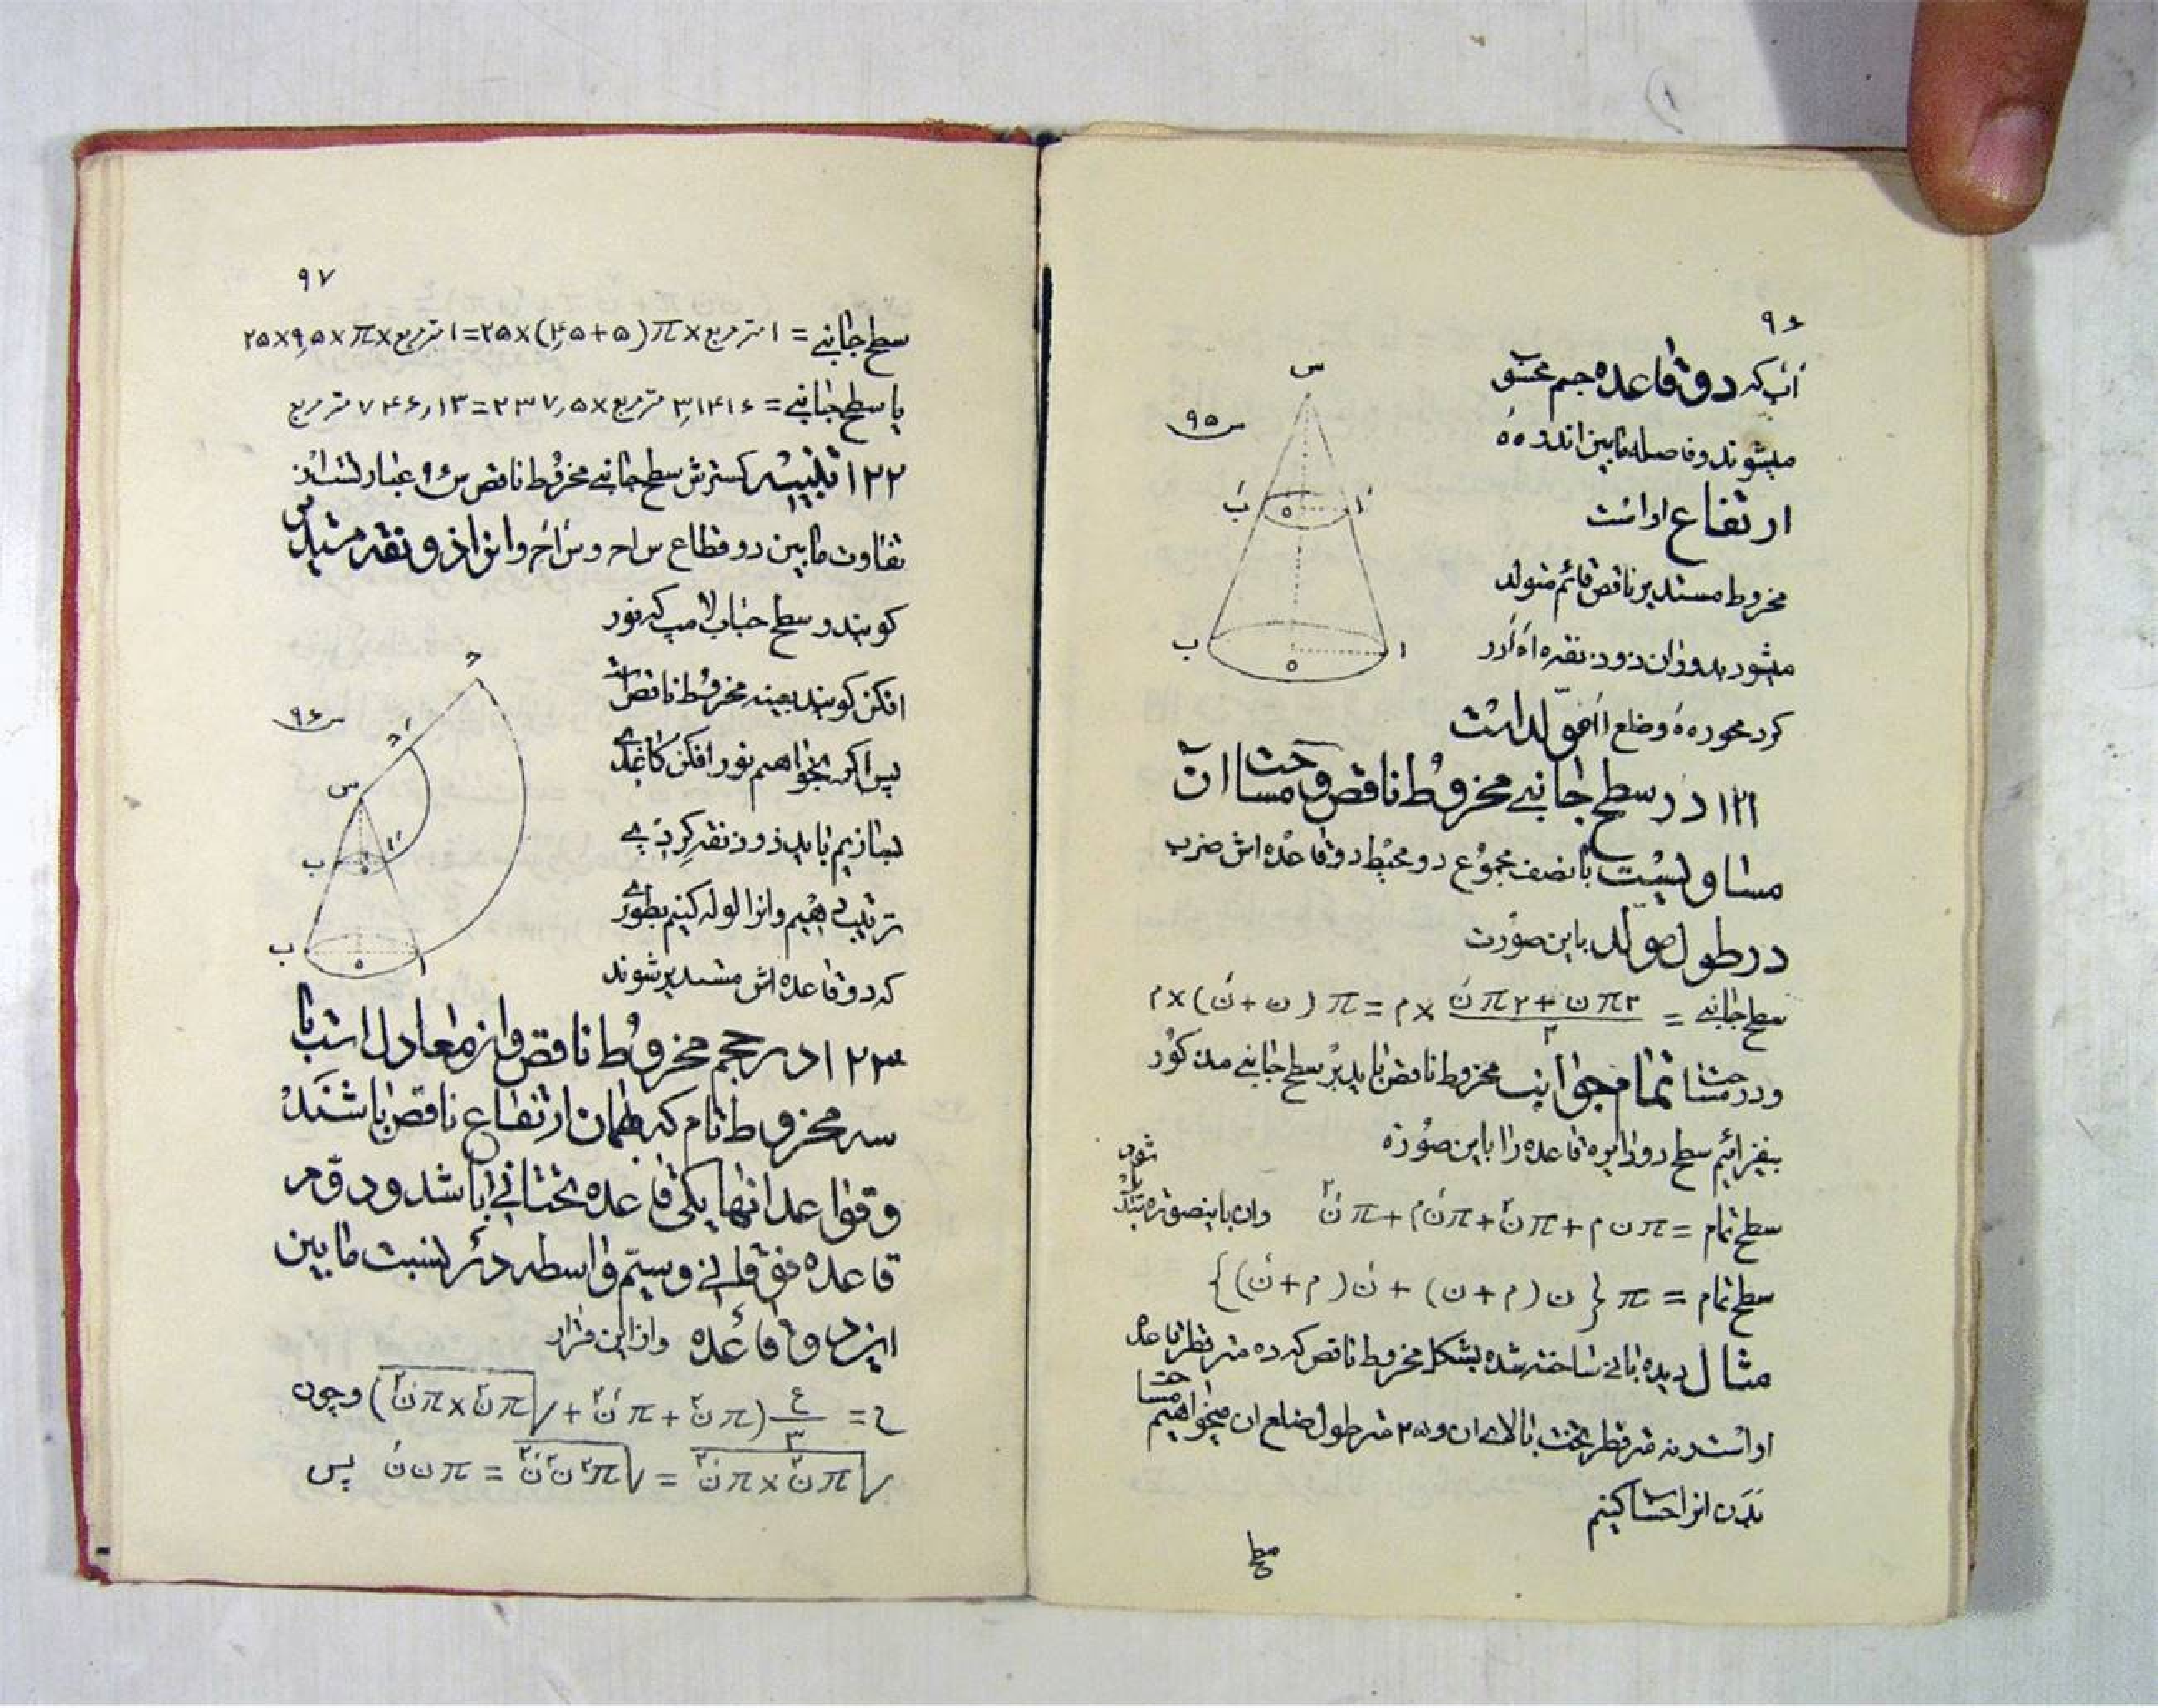 ۹۶
اَب که دو قاعده جسم محسوب
میشوند و فاصله مابین اندو ه هَ
ارتفاع او است
مخروط مستدیر ناقص قائم متولد
میشود بدوران ذوذنقه ا ه هَ اَ در
کرد محور ه هَ و ضلع ا اَ مولد است
س
س ۹۵
بَ ه اَ
ب ه ا
۱۲۱ در سطح جانبی مخروط ناقص و مساحت ان
مساویست با نصف مجموع دو محیط دو قاعده اش ضرب
در طول مولد باین صورت
سطح جانبی = ۲π ن + ۲π نَ / ۲ × م = π (ن + نَ) × م
و در مساحت تمام جوانب مخروط ناقص باید بر سطح جانبی مذکور
بیفزائیم سطح دو دایره قاعده را باین صورة
سطح تمام = π ن م + π ن۲ + π نَ م + π نَ۲ وان باینصورة
سطح تمام = π { ن (م + ن) + نَ (م + نَ) }
مثال دیده بانی ساخته شده بشکل مخروط ناقص که ده متر قطر قاعده
او است و نه متر قطر تخت بالای ان و ۲۵ متر طول ضلع ان میخواهیم مساحت
بدن انرا حساب کنیم
سطح
۹۷
سطح جانبی = ۱ متر مربع × π (۵ + ۴٫۵) × ۲۵ = ۱ متر مربع × π × ۹٫۵ × ۲۵
یا سطح جانبی = ۳٫۱۴۱۶ متر مربع × ۲۳۷٫۵ = ۷۴۶٫۱۳ متر مربع
۱۲۲ تنبیه کسترش سطح جانبی مخروط ناقص عبارتست از
تفاوت مابین دو قطاع س ا ح و س اَ حَ وانرا ذوذنقه مستدیر
کویند و سطح حباب لامپ که نور
افکن کویند بعینه مخروط ناقص است
پس اکر بخواهیم نور افکن کاغذی
بسازیم باید ذوذنقه کردی
ترتیب دهیم وانرا لوله کنیم بطوری
که دو قاعده اش مستدیر شوند
س ۹۶
ح
حَ
س
بَ اَ
ب ه ا
۱۲۳ در حجم مخروط ناقص وان معادل است با
سه مخروط تام که بهمان ارتفاع ناقص باشند
و قواعد انها یکی قاعده تحتانی باشد و دوم
قاعده فوقانی و سیم واسطه در نسبت مابین
این دو قاعده وازاین قرار
ح = ع / ۳ (π ن۲ + π نَ۲ + √π ن۲ × π نَ۲) وچون
√π ن۲ × π نَ۲ = √π۲ ن۲ نَ۲ = π ن نَ پس